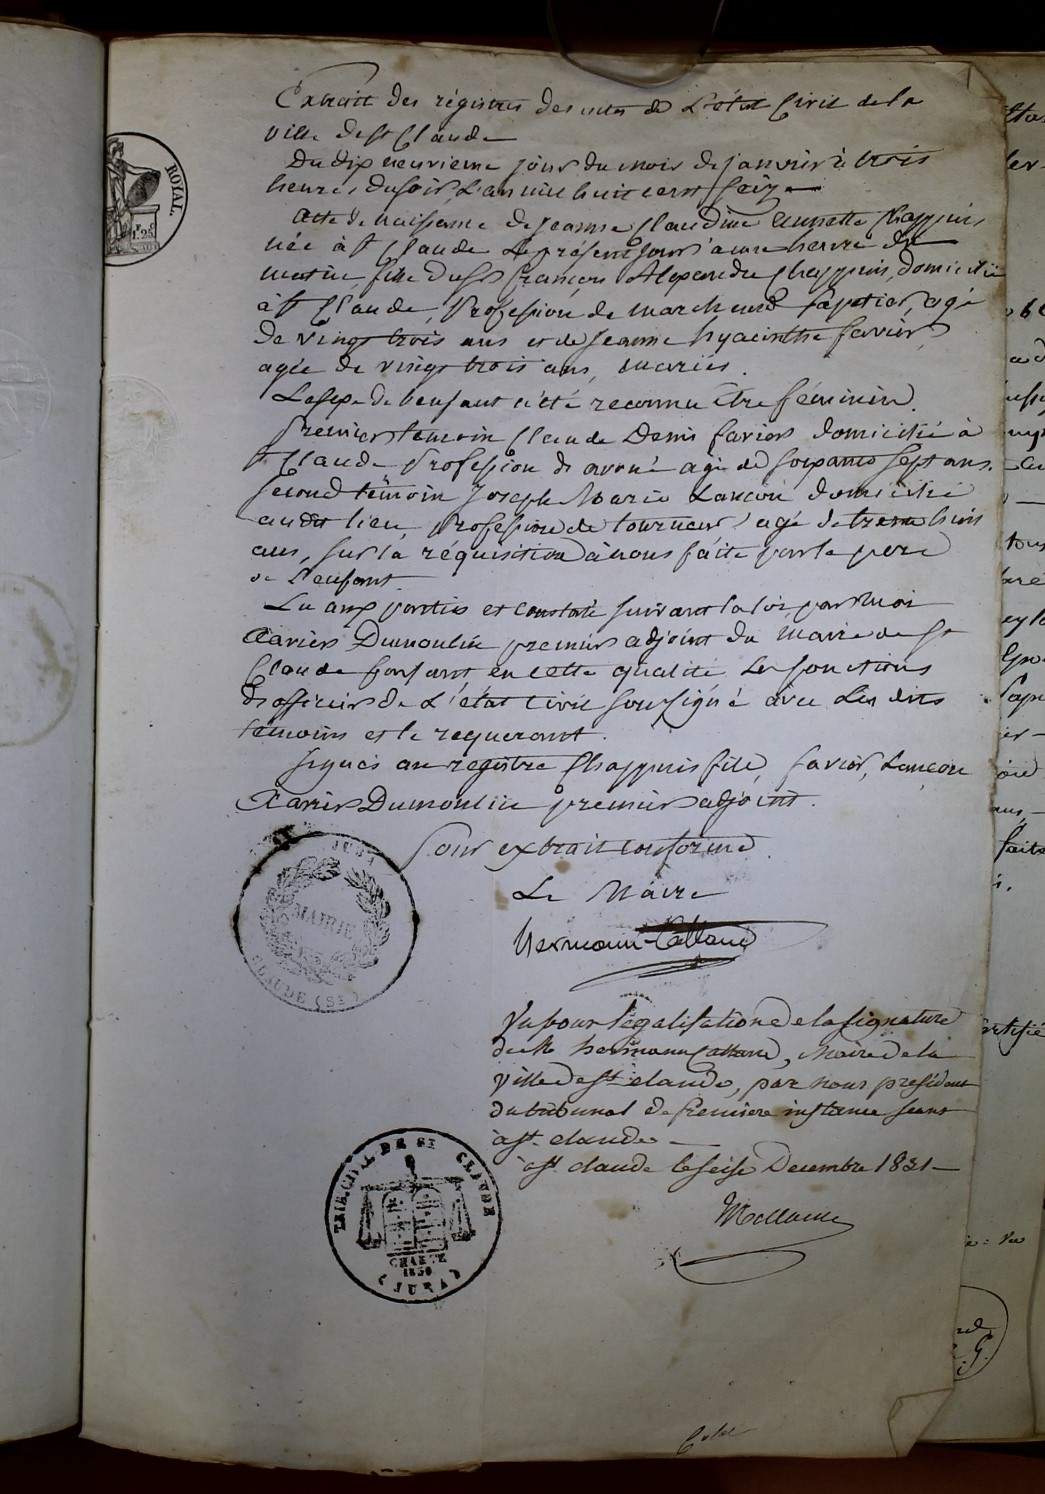 Extrait des régistres des actes de L'état Civil de la
ville de St Claude
Du dix neuvieme jour du mois de janvier à trois
heures du soir L'an mil huit cent seize
Acte de naissance de jeanne Claudine Annette Chappuis
née à St Claude Le présent jour à une heure du
matin, fille du Sr françois Alexandre Chappuis, domicilié
à St Claude, Profession de marchand papetier, agé
de vingt trois ans et de jeanne hyacinthe favier,
agée de vingt trois ans, mariés.
Le sexe de l'enfant a été reconnu être féminin.
Premier témoin Claude Denis favier domicilié à
St Claude Profession d' avoué agé de soixante sept ans.
second témoin Joseph Marie Lançon domicilié
audit lieu, profession de tourneur, agé de trente huit
ans, sur la réquisition à nous faite par le pere
de l'enfant
Lu aux parties et constaté suivant la loi, par Moi
Xavier Dumoulin premier adjoint du Maire de St
Claude faisant en cette qualité Les fonctions
d'officier de L'état Civil soussigné avec Les dits
témoins et le requerant.
Signés au registre Chappuis fils, favier, Lançon
Xavier Dumoulin premier adjoint.
Pour extrait conforme
Le Maire
Hermann-Calland
Vu pour légalisation de la signature
de Mr hermann Calland, Maire de la
ville de St claude, par nous président
du tribunal de Premiere instance séant
à St. claude —
à St claude le seise Decembre 1831 —
ROYAL.
1.F 25.C
JURA
MAIRIE
CLAUDE (ST.)
TRIB. CIVIL DE ST. CLAUDE
CHARTE
1830
(JURA)